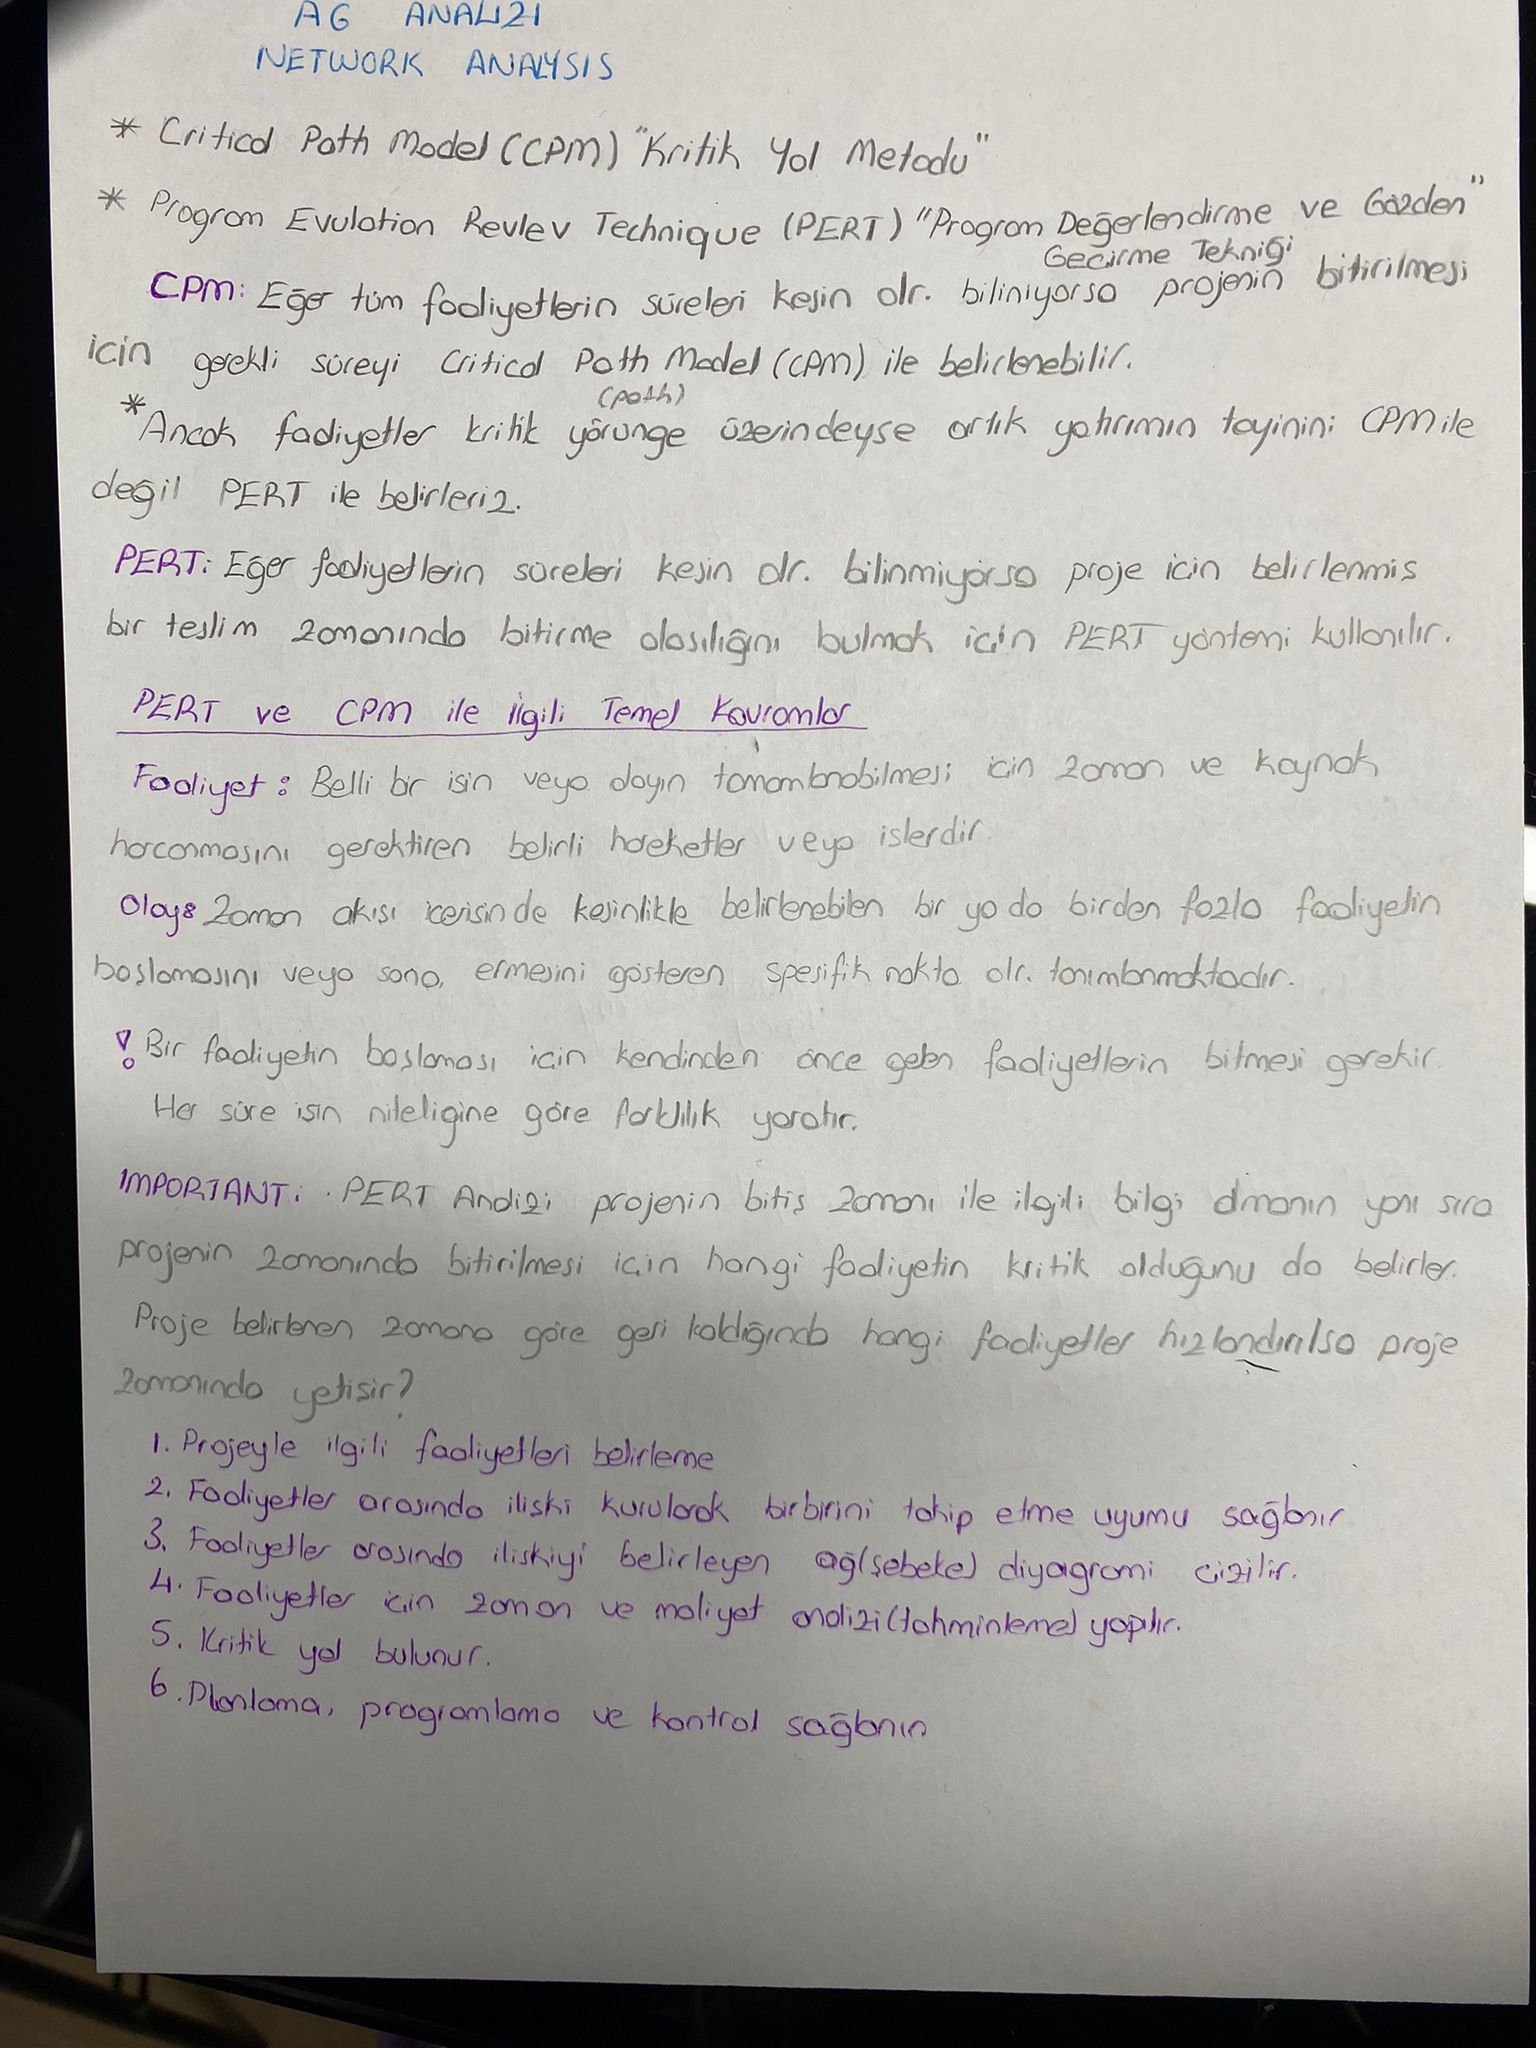 AG ANALIZI
NETWORK ANALYSIS
* Critical Path Model (CPM) "Kritik Yol Metodu"
* Program Evulation Revlev Technique (PERT) "Program Değerlendirme ve Gözden"
Geçirme Tekniği
CPM: Eğer tüm faaliyetlerin süreleri kesin olr. biliniyorsa projenin bitirilmesi
için gerekli süreyi Critical Path Model (CPM) ile belirlenebilir.
(path)
* Ancak faaliyetler kritik yörünge üzerindeyse artık yatırımın tayinini CPM ile
değil PERT ile belirleriz.
PERT: Eğer faaliyetlerin süreleri kesin olr. bilinmiyorsa proje için belirlenmis
bir teslim zamanında bitirme olasılığını bulmak için PERT yöntemi kullanılır.
PERT ve CPM ile ilgili Temel Kavramlar
Faaliyet: Belli bir isin veya olayın tamamlanabilmesi icin zaman ve kaynak
harcanmasını gerektiren belirli hareketler veya islerdir.
Olay: Zaman akısı icerisinde kesinlikle belirlenebilen bir ya da birden fazla faaliyetin
başlamasını veya sona ermesini gösteren spesifik nokta olr. tanımlanmaktadır.
! Bir faaliyetin başlaması için kendinden önce gelen faaliyetlerin bitmesi gerekir.
Her süre isin niteligine göre farklılık yaratır.
IMPORTANT: PERT Analizi projenin bitis zamanı ile ilgili bilgi almanın yanı sıra
projenin zamanında bitirilmesi için hangi faaliyetin kritik olduğunu da belirler.
Proje belirlenen zamana göre geri kaldığında hangi faaliyetler hızlandırılsa proje
zamanında yetisir?
1. Projeyle ilgili faaliyetleri belirleme
2. Faaliyetler arasında iliski kurularak birbirini takip etme uyumu sağlanır
3. Faaliyetler arasında iliskiyi belirleyen ağ(şebeke) diyagrami çizilir.
4. Faaliyetler için zaman ve maliyet analizi(tahminleme) yapılır.
5. Kritik yol bulunur.
6. Planlama, programlama ve kontrol sağlanır